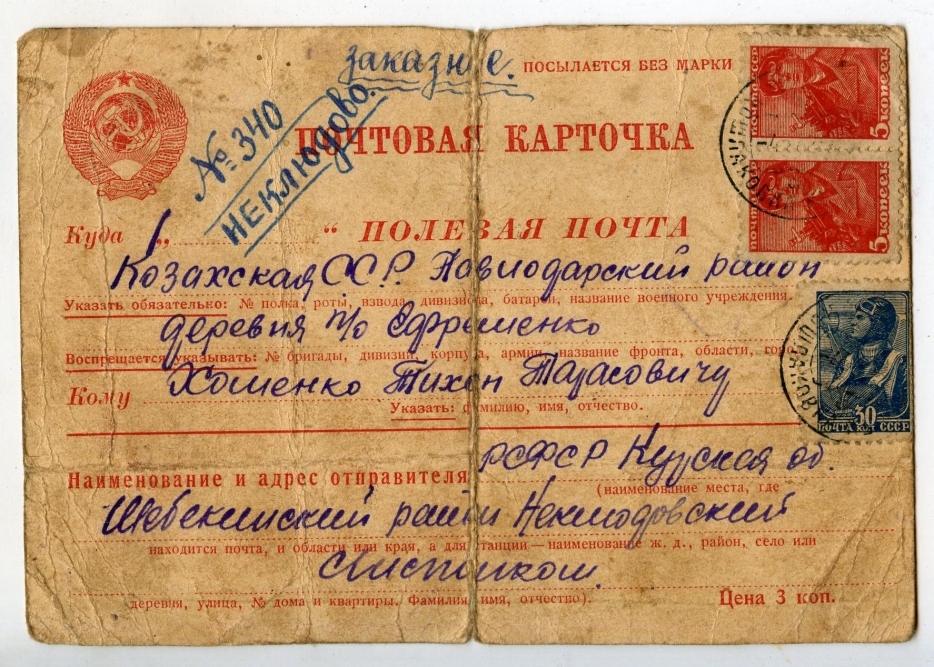 заказное.
ПОСЫЛАЕТСЯ БЕЗ МАРКИ
№ 340
НЕКЛЮДОВО.
ПОЧТОВАЯ КАРТОЧКА
5 КОПЕЕК
5 КОПЕЕК
Куда „ “ ПОЛЕВАЯ ПОЧТА
Козахская ССР. Павлодарский район
Указать обязательно: № полка, роты, взвода, дивизиона, батареи, название военного учреждения.
деревня п/о Ефременко
Воспрещается указывать: № бригады, дивизии, корпуса, армии, название фронта, области,
Хоменко Тихон Тарасовичу
Кому
Указать: фамилию, имя, отчество.
ПОЧТА 30 КОП СССР
РСФСР Курская об.
Наименование и адрес отправителя
(наименование места, где
Шебекинский район Неклюдовский
находится почта, и области или края, а для станции—наименование ж. д., район, село или
деревня, улица, № дома и квартиры. Фамилия, имя, отчество).
Цена 3 коп.